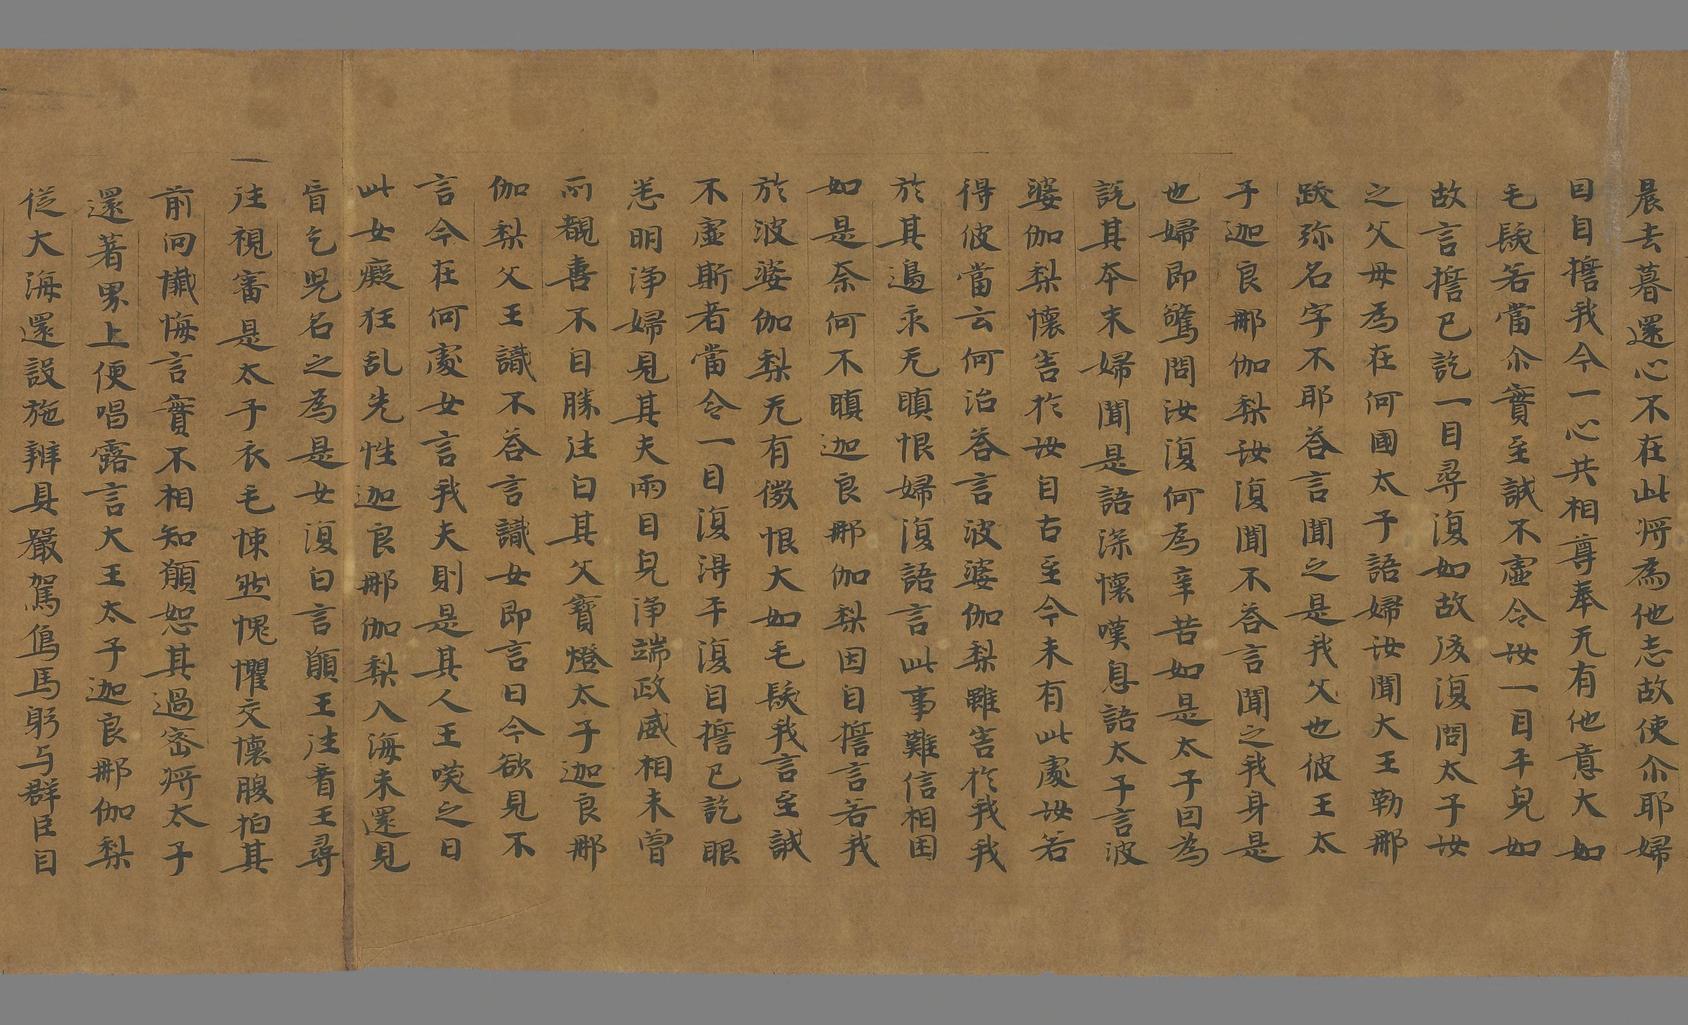 晨去暮還心不在此將為他志故使尒耶婦
因自擔我今一心共相尊奉无有他意大如
毛髮若當尒實至誠不虛令汝一目平皃如
故言擔已訖一目尋復如故後復問太子汝
之父母為在何國太子語婦汝聞大王勒那
跋弥名字不耶答言聞之是我父也彼王太
子迦良那伽梨汝復聞不答言聞之我身是
也婦即驚問汝復何為辛苦如是太子因為
說其夲末婦聞是語深懷嘆息語太子言波
婆伽梨懷害扵汝自古至今未有此處汝若
得彼當云何治答言波婆伽梨雖害扵我我
於其邊永无瞋恨婦復語言此事難信相困
如是奈何不瞋迦良那伽梨因自擔言若我
於波婆伽梨无有微恨大如毛髮我言至誠
不虛斯者當令一目復得平復自擔已訖眼
恙明淨婦見其夫兩目皃淨端政威相未曾
所覩喜不自勝注白其父寶燈太子迦良那
伽梨父王識不答言識女即言曰今欲見不
言今在何處女言我夫則是其人王㗛之曰
此女癡狂乱失性迦良那伽梨入海未還見
盲乞兒名之為是女復白言願王注看王尋
注視審是太子衣毛悚然愧懼交懷腹拍其
前向懺悔言實不相知願恕其過密將太子
還著界上便唱露言大王太子迦良那伽梨
從大海還設施辦具嚴駕鳥馬躬与群臣自